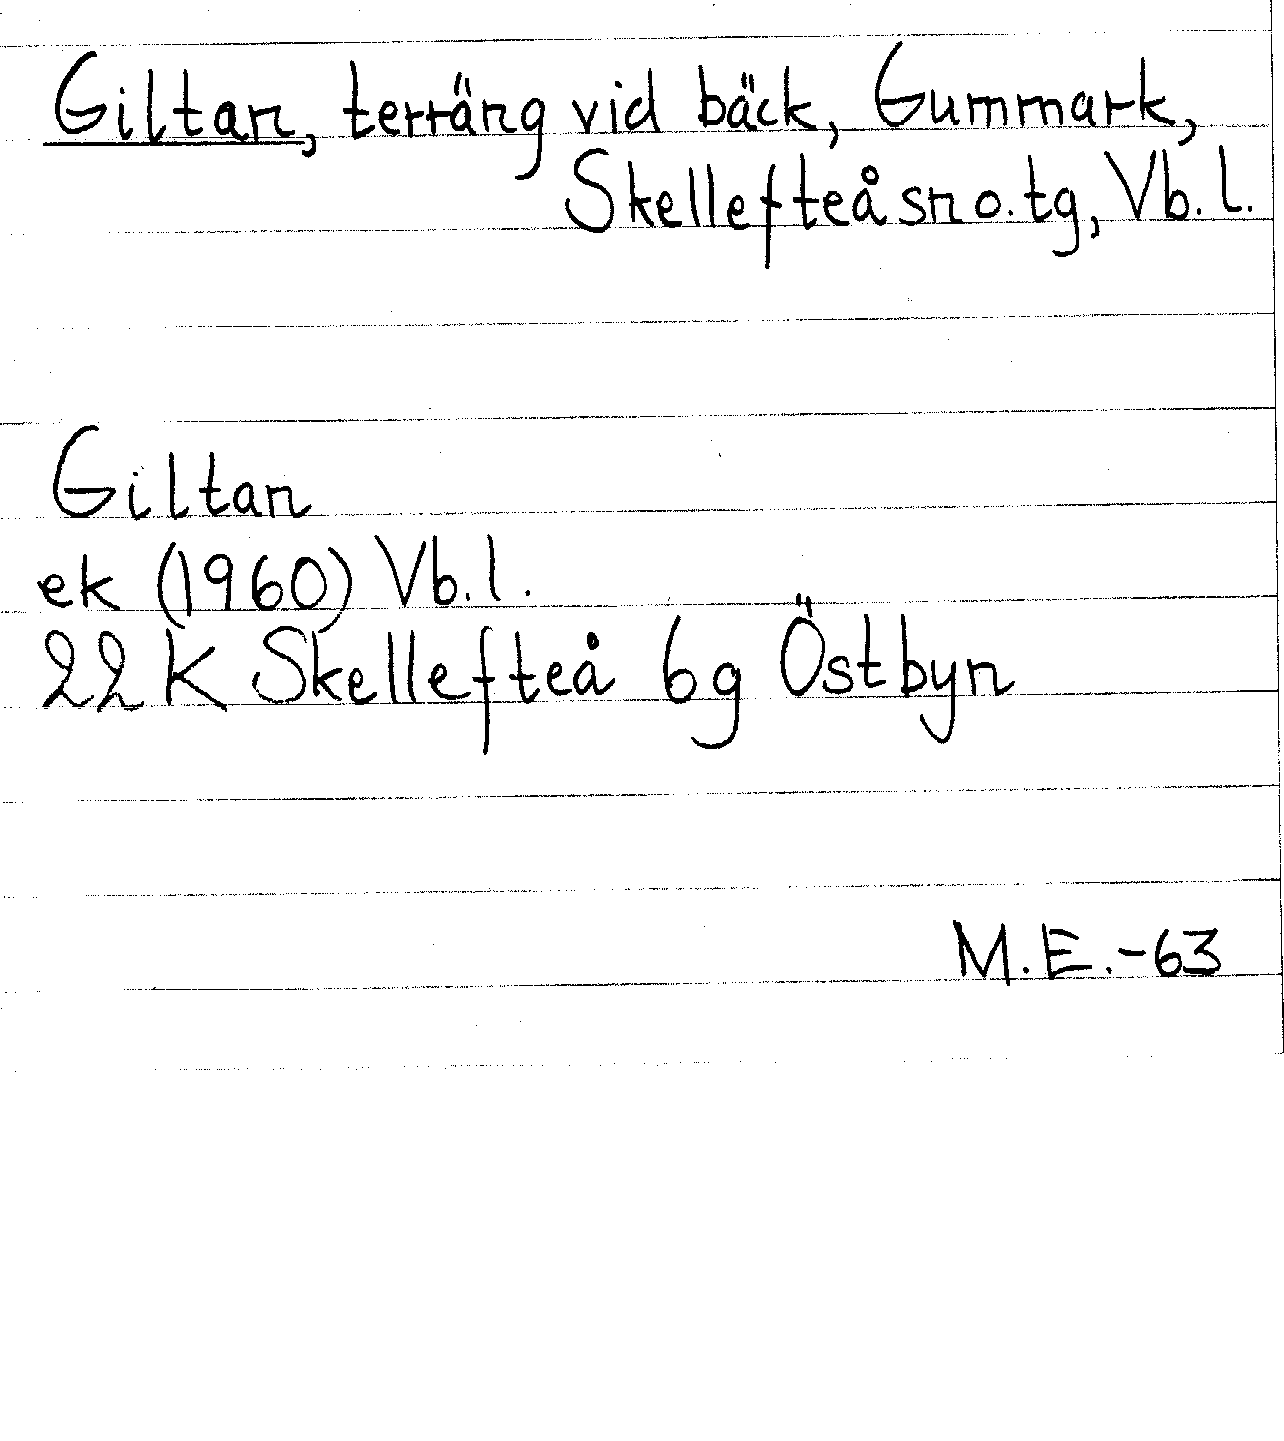 Giltan, terräng vid bäck, Gummark,
Skellefteå sn o. tg, Vb. l.
Giltan
ek (1960) Vb. l.
22 K Skellefteå 6g Östbyn
M.E.-63